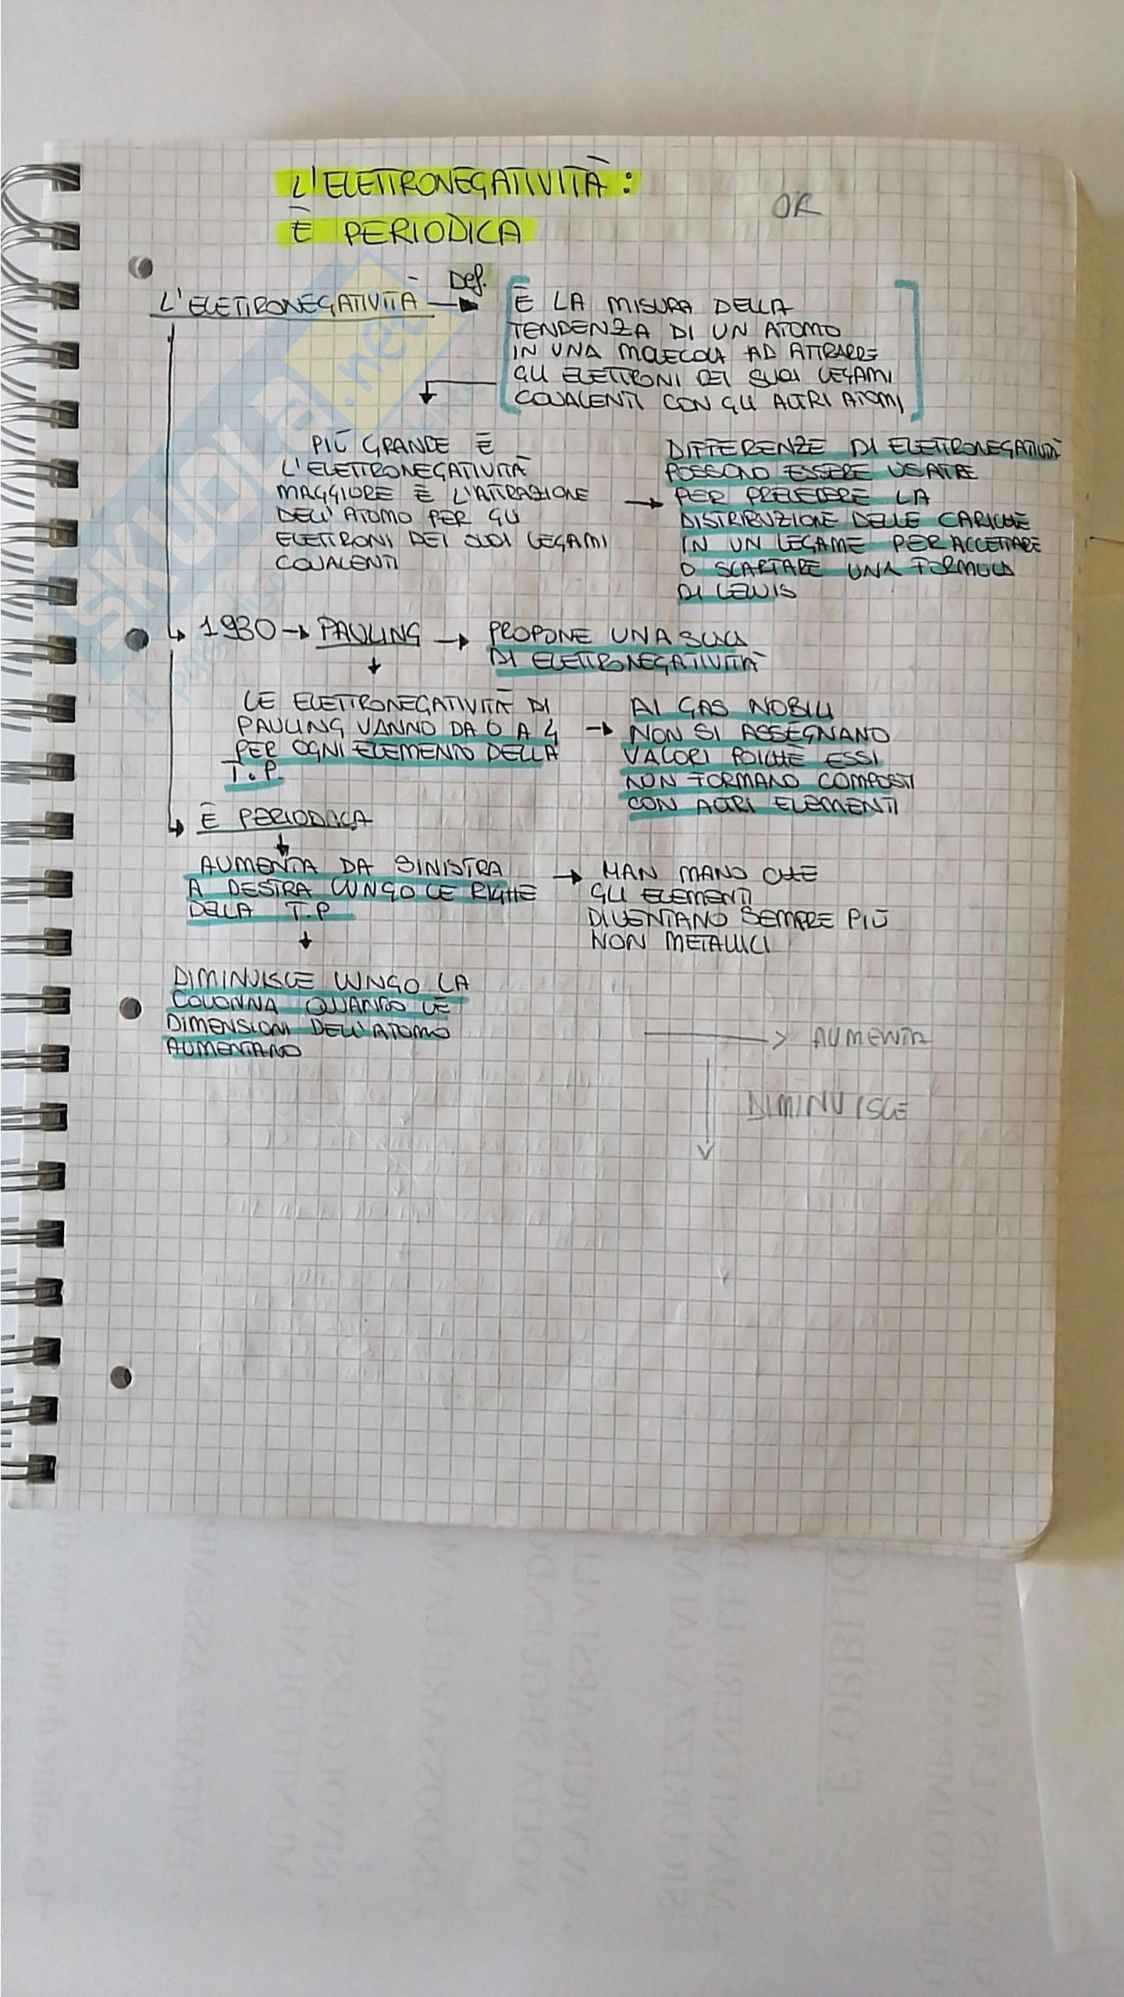 L'ELETTRONEGATIVITÀ:
È PERIODICA
OR
L'ELETTRONEGATIVITÀ → Def.
È LA MISURA DELLA
TENDENZA DI UN ATOMO
IN UNA MOLECOLA AD ATTRARRE
GLI ELETTRONI DEI SUOI LEGAMI
COVALENTI CON GLI ALTRI ATOMI
PIÙ GRANDE È
L'ELETTRONEGATIVITÀ
MAGGIORE È L'ATTRAZIONE
DELL'ATOMO PER GLI
ELETTRONI DEI SUOI LEGAMI
COVALENTI
DIFFERENZE DI ELETTRONEGATIVITÀ
POSSONO ESSERE USATE
PER PREVEDERE LA
DISTRIBUZIONE DELLE CARICHE
IN UN LEGAME PER ACCETTARE
O SCARTARE UNA FORMULA
DI LEWIS
1930 → PAULING → PROPONE UNA SCALA
DI ELETTRONEGATIVITÀ
LE ELETTRONEGATIVITÀ DI
PAULING VANNO DA 0 A 4
PER OGNI ELEMENTO DELLA
T.P.
AI GAS NOBILI
NON SI ASSEGNANO
VALORI POICHÈ ESSI
NON FORMANO COMPOSTI
CON ALTRI ELEMENTI
È PERIODICA
AUMENTA DA SINISTRA
A DESTRA LUNGO LE RIGHE
DELLA T.P
MAN MANO CHE
GLI ELEMENTI
DIVENTANO SEMPRE PIÙ
NON METALLICI
DIMINUISCE LUNGO LA
COLONNA QUANDO LE
DIMENSIONI DELL'ATOMO
AUMENTANO
AUMENTA
DIMINUISCE
SKUOLA.net